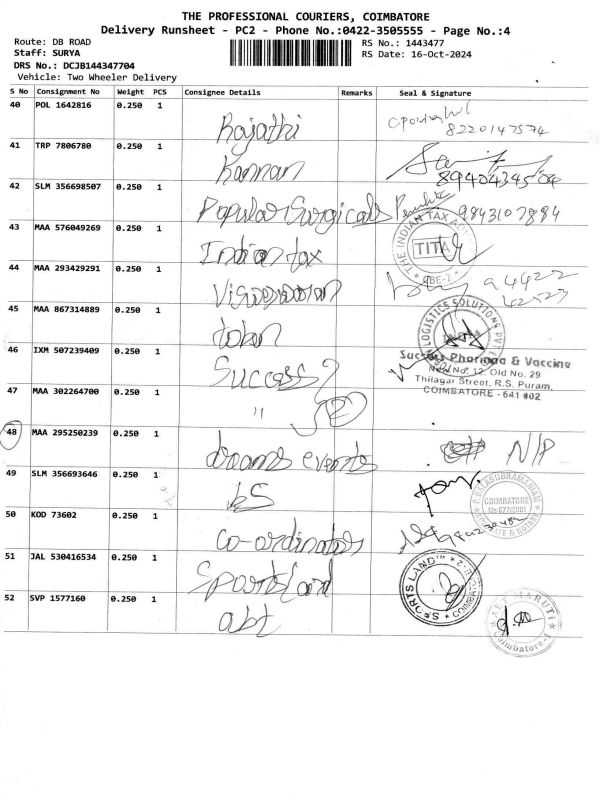 THE PROFESSIONAL COURIERS, COIMBATORE
Delivery Runsheet - PC2 - Phone No.:0422-3505555 - Page No.:4
Route: DB ROAD
Staff: SURYA
RS No.: 1443477
RS Date: 16-Oct-2024
DRS No.: DCJB144347704
Vehicle: Two Wheeler Delivery
S No Consignment No Weight PCS Consignee Details Remarks Seal & Signature
40 POL 1642816 0.250 1 Rajathi 8220147574
41 TRP 7806780 0.250 1 Kannan 8940434504
42 SLM 356698507 0.250 1 Popular Surgicals 9843107884
43 MAA 576049269 0.250 1 Indian tax THE INDIAN TAX TITA CBE-2
44 MAA 293429291 0.250 1 94422
42523
45 MAA 867314889 0.250 1 LOGISTICS SOLUTIONS PVT
46 IXM 507239409 0.250 1 Success
Success Pharma & Vaccine
New No. 12, Old No. 29
Thilagar Street, R.S. Puram,
COIMBATORE - 641 002
47 MAA 302264700 0.250 1 "
48 MAA 295250239 0.250 1 dreams events N/P
49 SLM 356693646 0.250 1 BALASUBRAMANIAN COIMBATORE Ms 677/2001 ADVOCATE & NOTARY
50 KOD 73602 0.250 1 Co-ordinator
51 JAL 530416534 0.250 1 Sports Land SPORTS LAND COIMBATORE-2
52 SVP 1577160 0.250 1 abt MARUTI Coimbatore-1